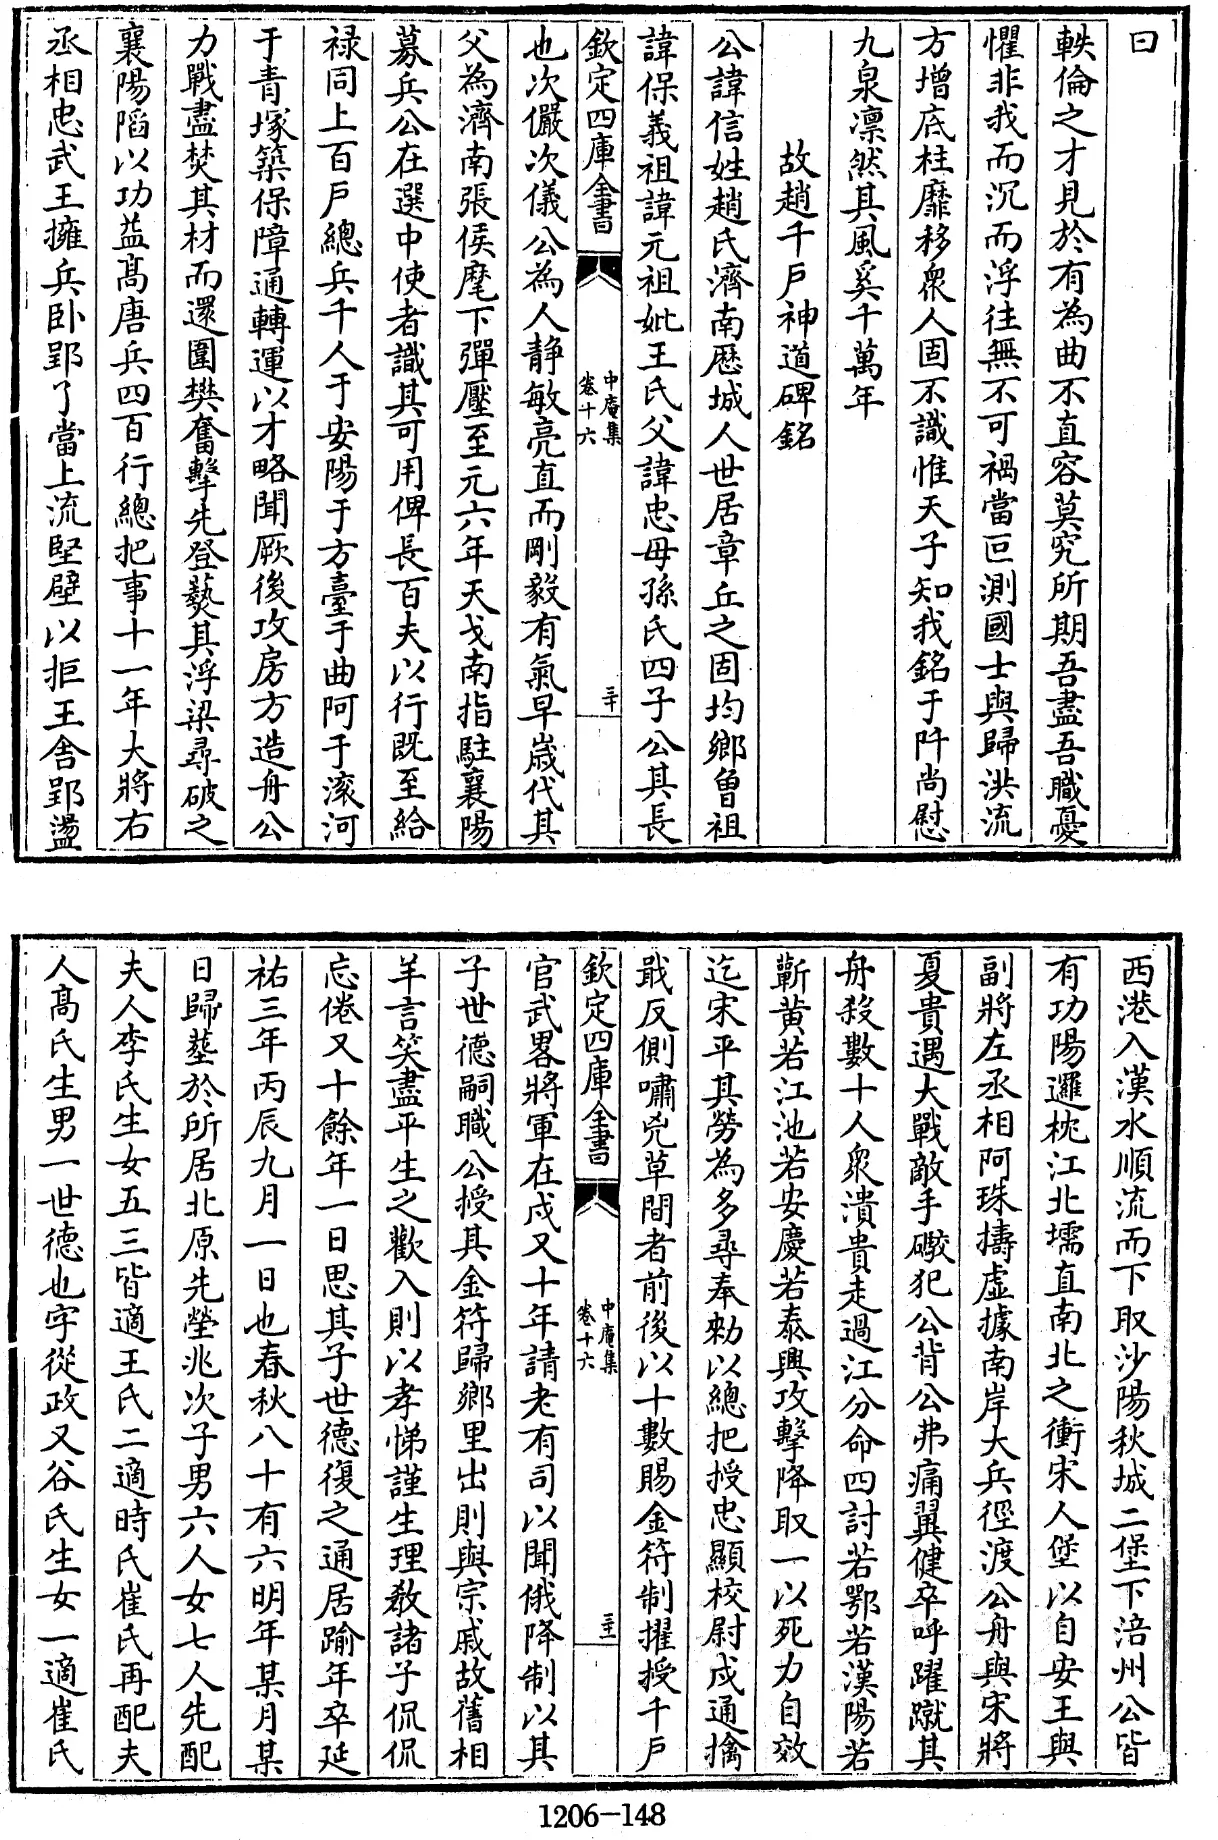 曰
軼倫之才見於有為曲不直容莫究所期吾盡吾職憂
懼非我而沉而浮往無不可禍當叵測國士與歸洪流
方增底柱靡移衆人固不識惟天子知我銘于阡尚慰
九泉凛然其風奚千萬年
故趙千戶神道碑銘
公諱信姓趙氏濟南歴城人世居章丘之固均鄉曾祖
諱保義祖諱元祖妣王氏父諱忠母孫氏四子公其長
欽定四庫全書
中庵集
卷十六
三十
也次儼次儀公為人静敏亮直而剛毅有氣早嵗代其
父為濟南張侯麾下彈壓至元六年天戈南指駐襄陽
募兵公在選中使者識其可用俾長百夫以行既至給
禄同上百戶總兵千人于安陽于方臺于曲阿于滚河
于青塚築保障通轉運以才略聞厥後攻房方造舟公
力戰盡焚其材而還圍樊奮擊先登爇其浮梁尋破之
襄陽䧟以功益髙唐兵四百行總把事十一年大將右
丞相忠武王擁兵卧郢了當上流堅壁以拒王舍郢盪
西港入漢水順流而下取沙陽秋城二堡下涪州公皆
有功陽邏枕江北壖直南北之衝宋人堡以自安王與
副將左丞相阿珠擣虚據南岸大兵徑渡公舟與宋將
夏貴遇大戰敵手礮犯公背公弗痛翼健卒呼躍蹴其
舟殺數十人衆潰貴走過江分命四討若鄂若漢陽若
蘄黄若江池若安慶若泰興攻擊降取一以死力自效
迄宋平其勞為多尋奉勅以總把授忠顯校尉戍通擒
戢反側嘯兇草間者前後以十數賜金符制擢授千戶
欽定四庫全書
中庵集
卷十六
三十一
官武畧將軍在戍又十年請老有司以聞俄降制以其
子世德嗣職公授其金符歸鄉里出則與宗戚故舊相
羊言笑盡平生之歡入則以孝悌謹生理教諸子侃侃
忘倦又十餘年一日思其子世德復之通居踰年卒延
祐三年丙辰九月一日也春秋八十有六明年某月某
日歸塟於所居北原先塋兆次子男六人女七人先配
夫人李氏生女五三皆適王氏二適時氏崔氏再配夫
人髙氏生男一世德也字從政又谷氏生女一適崔氏
1206-148